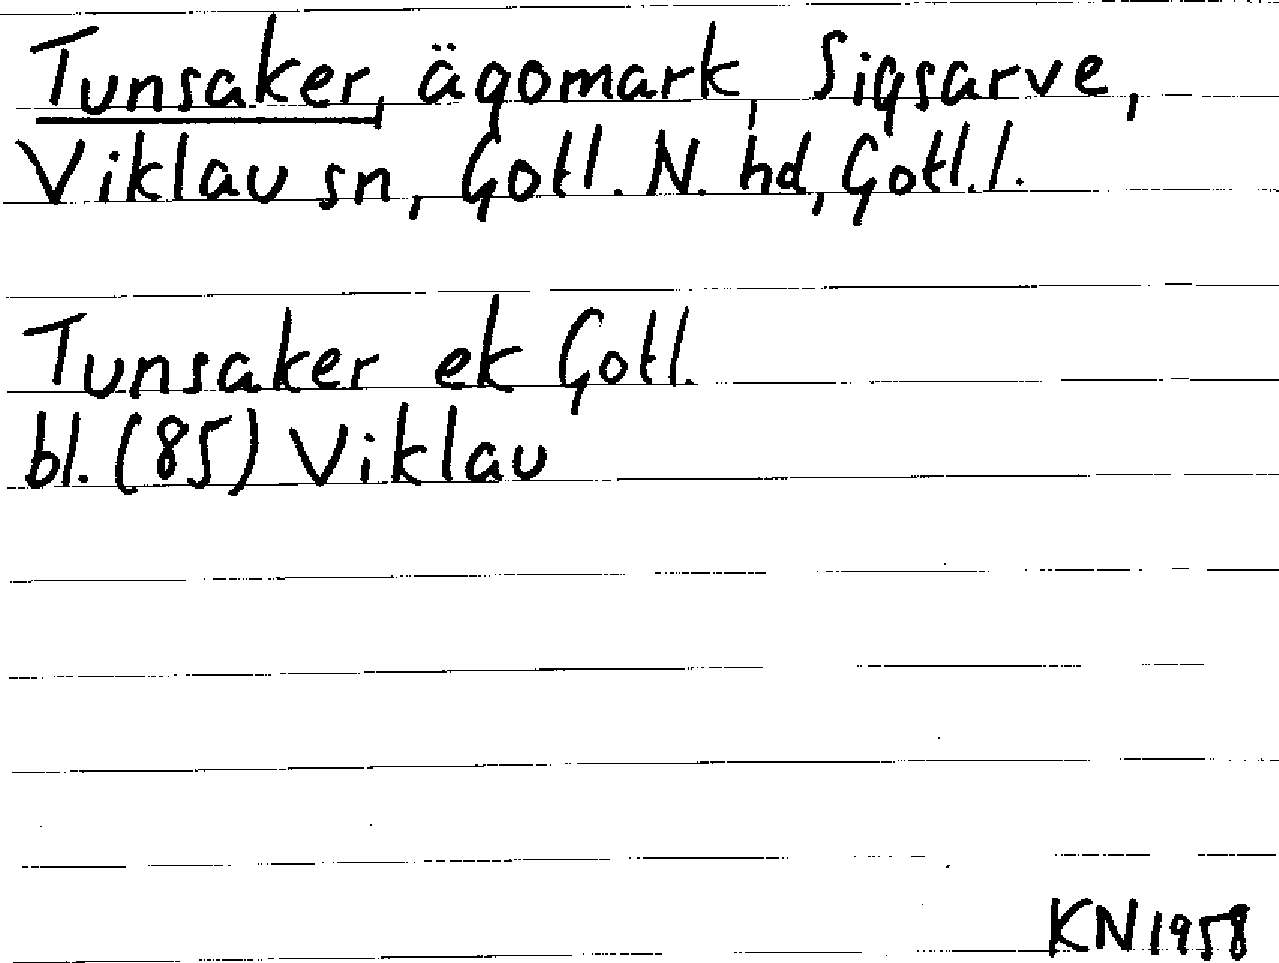 Tunsaker, ägomark, Sigsarve,
Viklau sn, Gotl. N. hd, Gotl. l.
Tunsaker ek Gotl.
bl. (85) Viklau
KN 1958